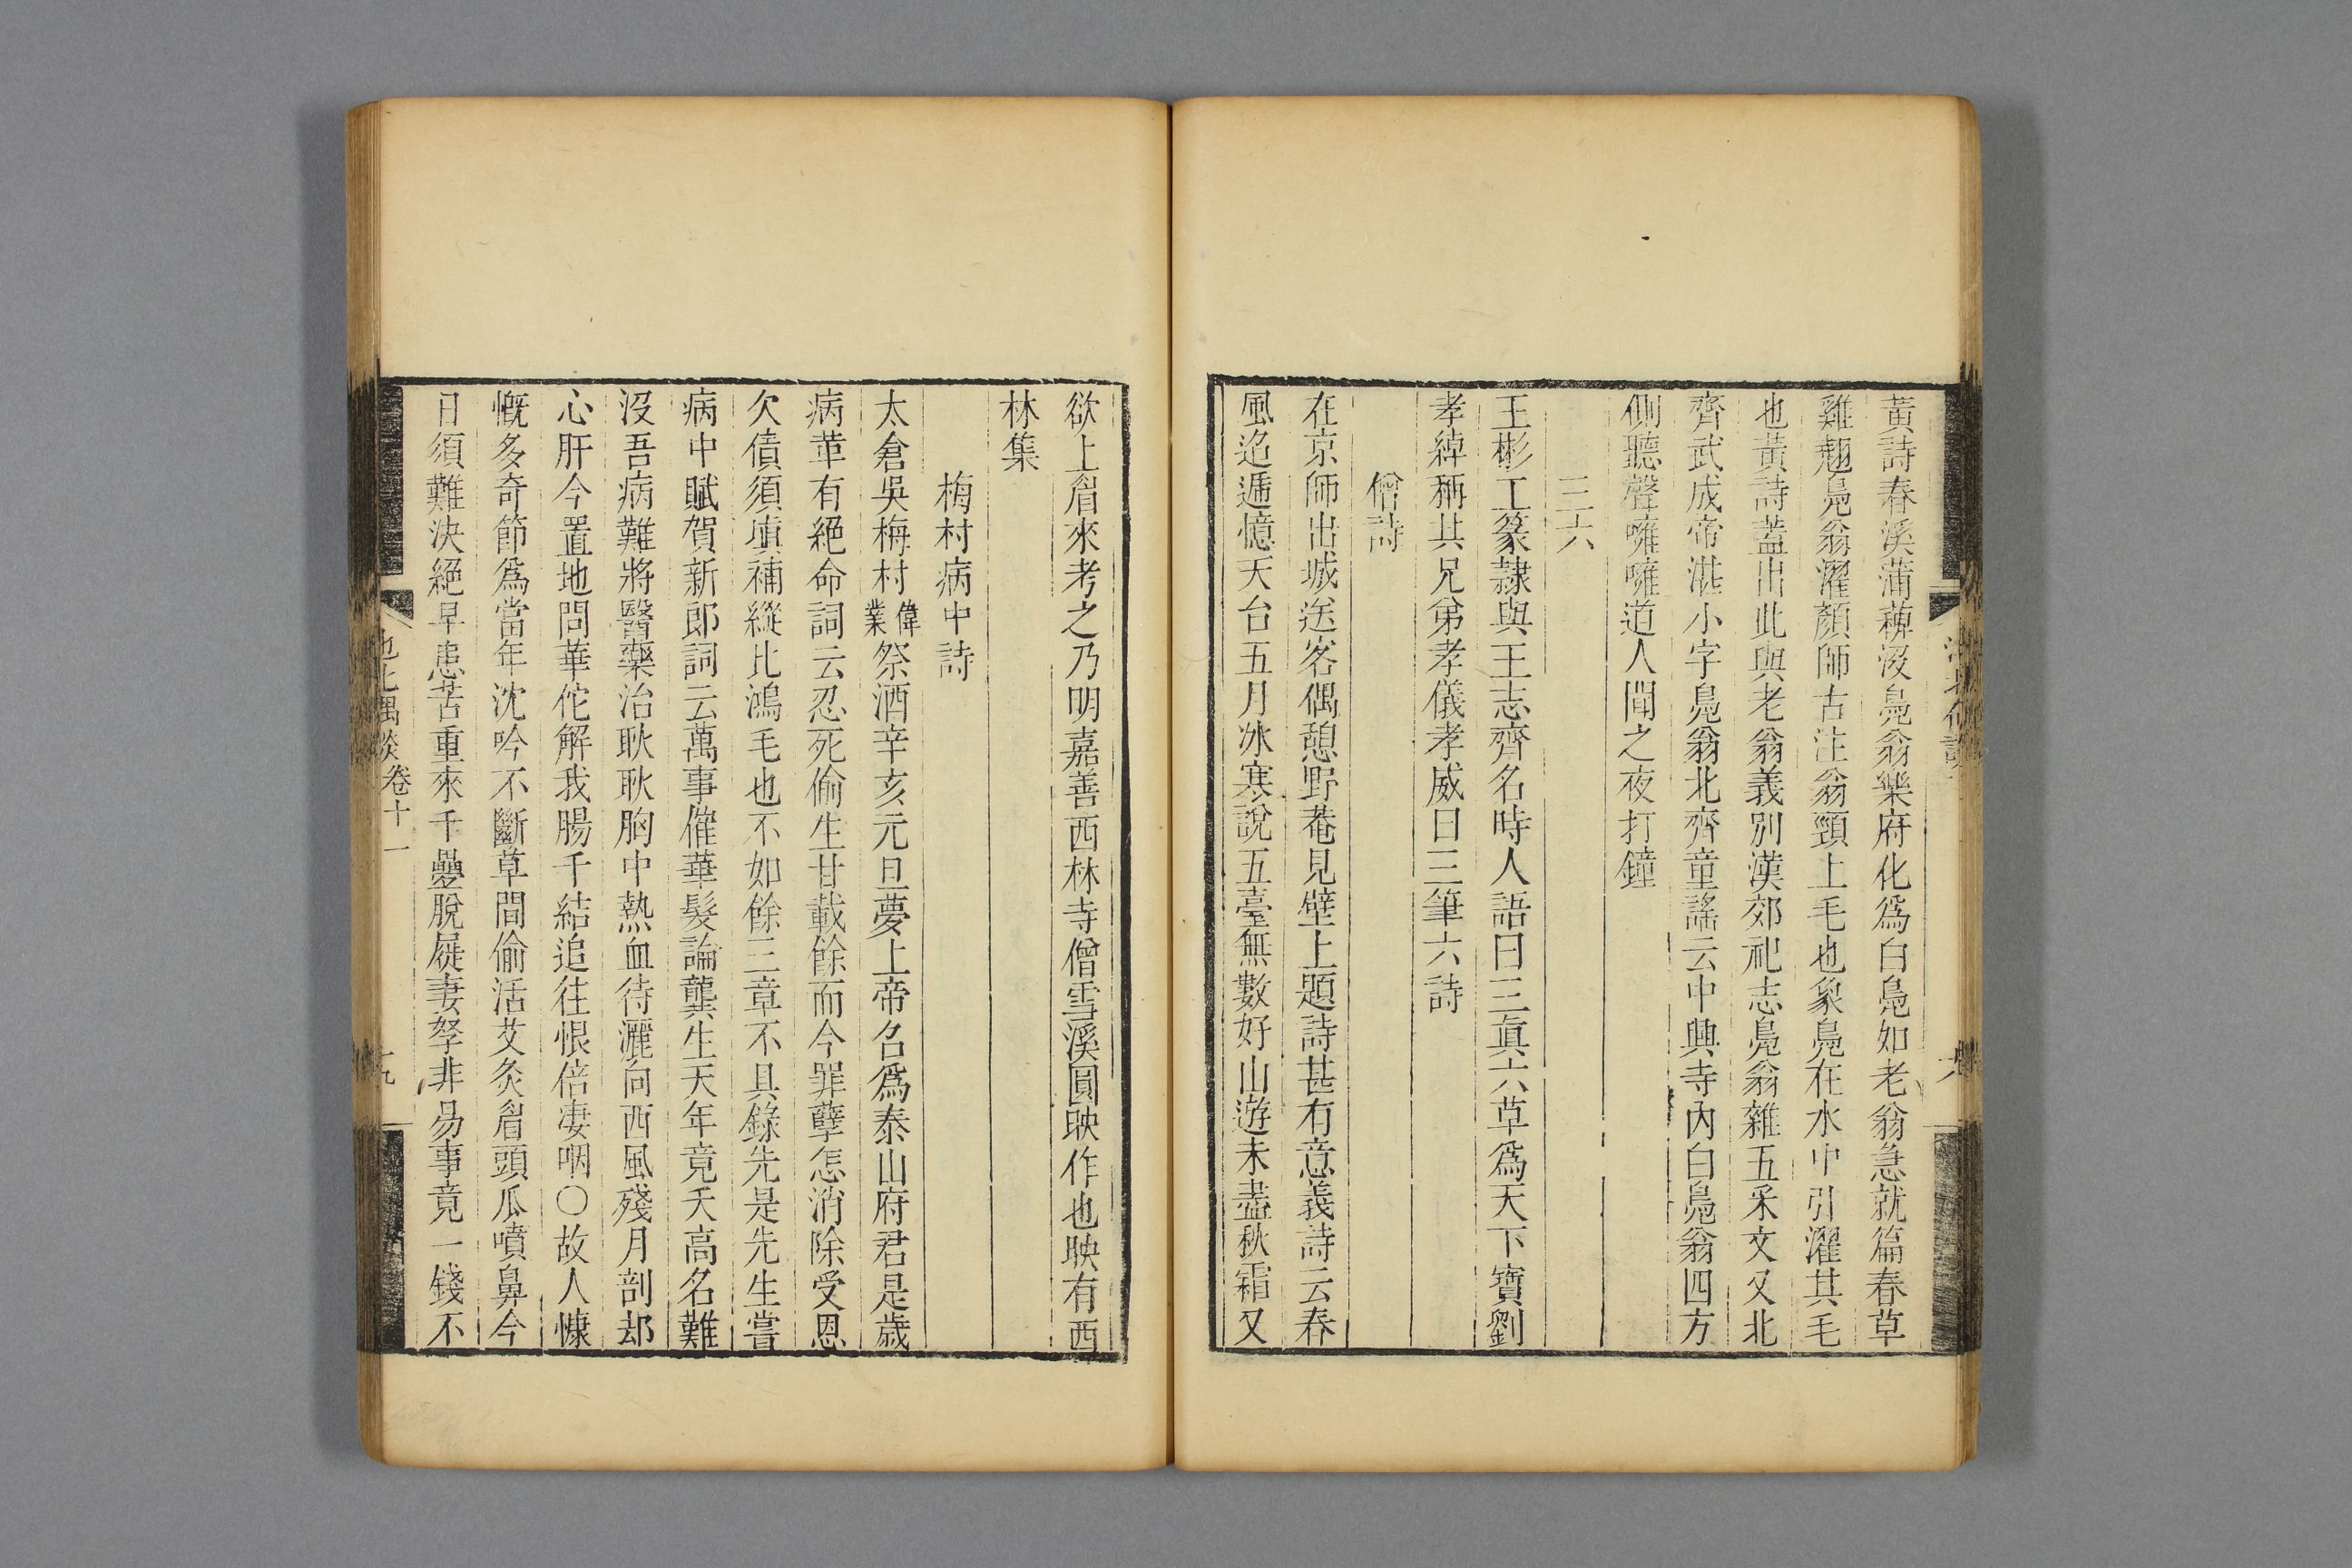 黃詩春溪蒲稗沒鳧翁樂府化爲白鳧如老翁急就篇春草
雞翹鳧翁濯顏師古注翁頸上毛也象鳧在水中引濯其毛
也黃詩蓋出此與老翁義別漢郊祀志鳧翁雜五采文又北
齊武成帝湛小字鳧翁北齊童謠云中興寺內白鳧翁四方
側聽聲嗈嗈道人聞之夜打鐘
三六
王彬工篆隷與王志齊名時人語曰三眞六草爲天下寶劉
孝綽稱其兄弟孝儀孝威曰三筆六詩
僧詩
在京師出城送客偶憩野菴見壁上題詩甚有意義詩云春
風迢遞憶天台五月冰寒說五臺無數好山遊未盡秋霜又
欲上眉來考之乃明嘉善西林寺僧雪溪圓映作也映有西
林集
梅村病中詩
太倉吳梅村偉業祭酒辛亥元旦夢上帝召爲泰山府君是歲
病革有絕命詞云忍死偷生廿載餘而今罪孽怎消除受恩
欠債須塡補縱比鴻毛也不如餘三章不具錄先是先生嘗
病中賦賀新郎詞云萬事催華髮論龔生天年竟夭高名難
沒吾病難將醫藥治耿耿胸中熱血待灑向西風殘月剖却
心肝今置地問華佗解我腸千結追往恨倍凄咽〇故人慷
慨多奇節爲當年沈吟不斷草間偷活艾灸眉頭瓜噴鼻今
日須難決絕早患苦重來千疊脫屣妻孥非易事竟一錢不
池北偶談卷十一